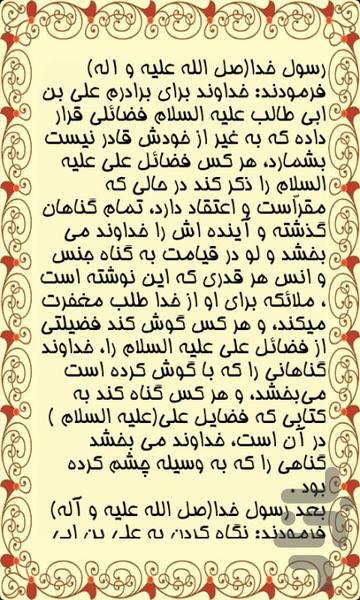 رسول خدا(صل الله علیه و اله)
فرمودند: خداوند برای برادرم علی بن
ابی طالب علیه السلام فضائلی قرار
داده که به غیر از خودش قادر نیست
بشمارد، هر کس فضائل علی علیه
السلام را ذکر کند در حالی که
مقرّاست و اعتقاد دارد، تمام گناهان
گذشته و آینده اش را خداوند می
بخشد و لو در قیامت به گناه جنس
و انس هر قدری که این نوشته است
، ملائکه برای او از خدا طلب مغفرت
میکند، و هر کس گوش کند فضیلتی
از فضائل علی علیه السلام را، خداوند
گناهانی را که با گوش کرده است
می‌بخشد، و هر کس گناه کند به
کتابی که فضایل علی(علیه السلام )
در آن است، خداوند می بخشد
گناهی را که به وسیله چشم کرده
بود .
بعد رسول خدا(صل الله علیه و آله)
فرمودند: نگاه کردن به علی بن ابی